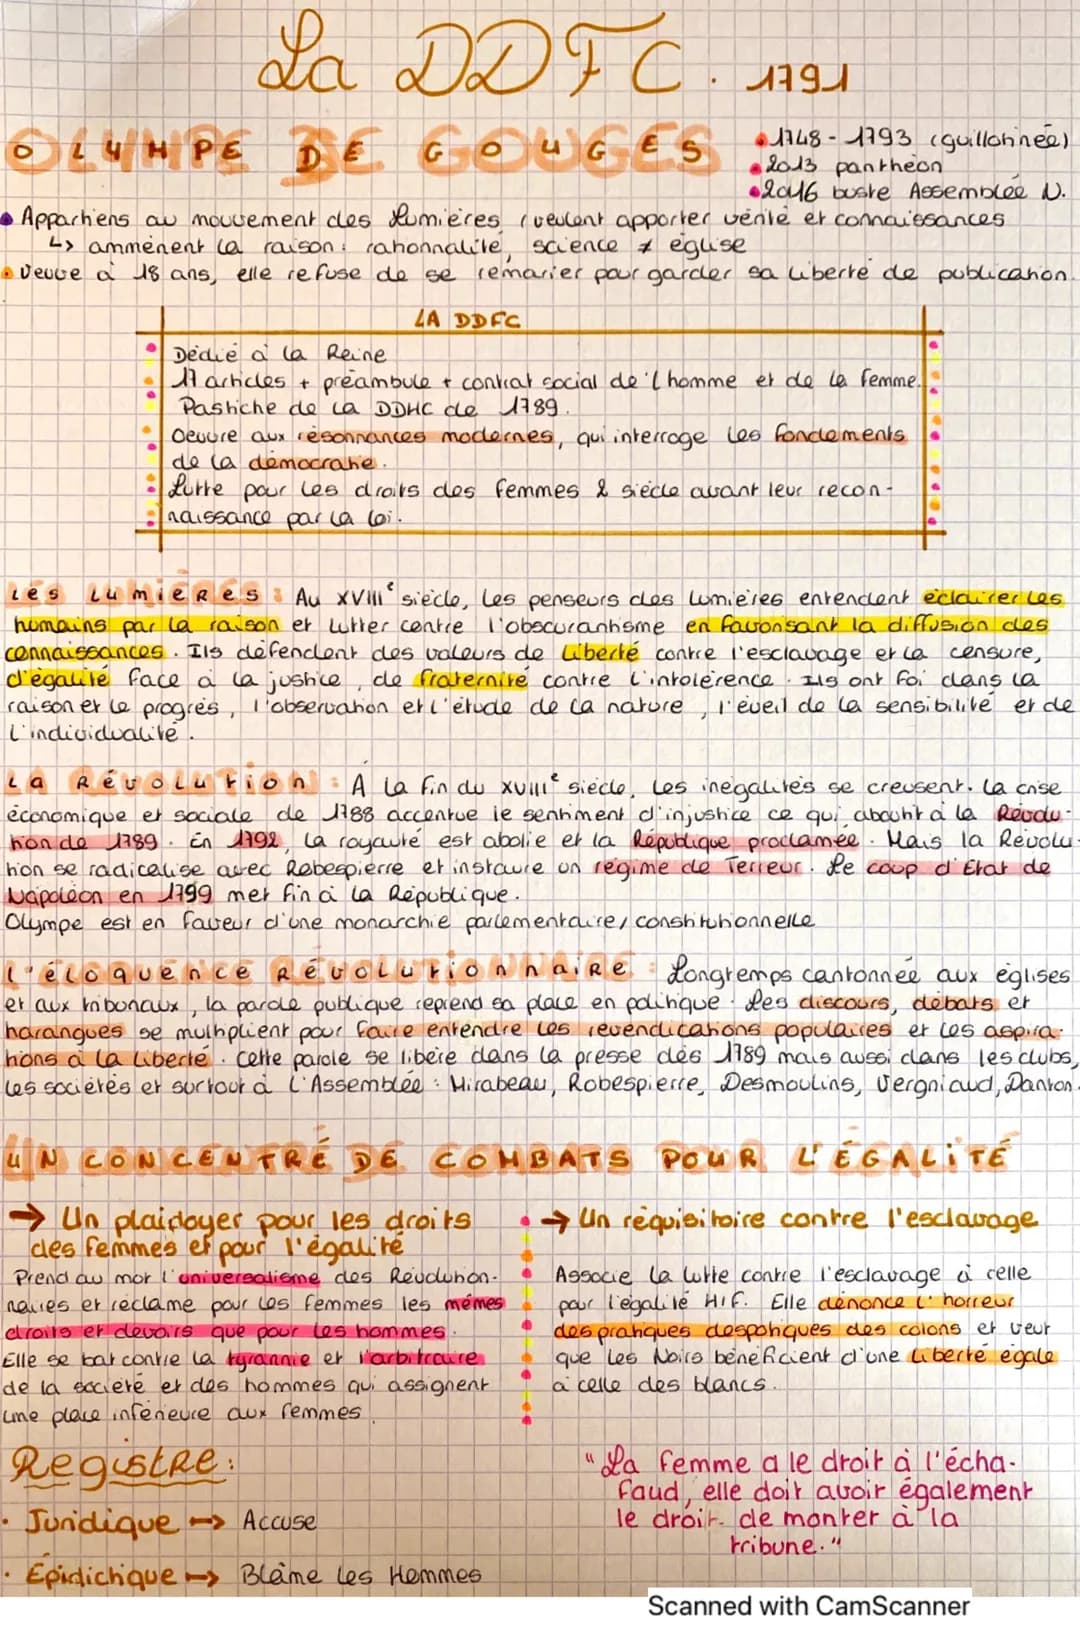 La DDFC. 1791
OLYMPE DE GOUGES
• 1748 - 1793 (guillotinée)
• 2013 panthéon
• 2016 buste Assemblée N.
• Appartiens au mouvement des Lumières (veulent apporter vérité et connaissances
↳ ammènent la raison : rationnalité, science ≠ église
• Veuve à 18 ans, elle refuse de se remarier pour garder sa liberté de publication.
LA DDFC
Dédié à la Reine
17 articles + préambule + contrat social de l'homme et de la femme.
Pastiche de la DDHC de 1789.
Oeuvre aux résonnances modernes, qui interroge les fondements
de la démocratie.
Lutte pour les droits des femmes 2 siècle avant leur recon-
naissance par la loi.
Les Lumières : Au XVIIIe siècle, les penseurs des Lumières entendent éclairer les
humains par la raison et lutter contre l'obscurantisme en favorisant la diffusion des
connaissances. Ils défendent des valeurs de liberté contre l'esclavage et la censure,
d'égalité face à la justice, de fraternité contre l'intolérence. Ils ont foi dans la
raison et le progrès, l'observation et l'étude de la nature, l'éveil de la sensibilité et de
l'individualité.
La Révolution : À la fin du XVIIIe siècle, les inégalités se creusent. La crise
économique et sociale de 1788 accentue le sentiment d'injustice ce qui aboutit à la Révolu-
tion de 1789. En 1792, la royauté est abolie et la République proclamée. Mais la Révolu-
tion se radicalise avec Robespierre et instaure un régime de Terreur. Le coup d'Etat de
Napoléon en 1799 met fin à la République.
Olympe est en faveur d'une monarchie parlementaire/constitutionnelle
L'éloquence Révolutionnaire : Longtemps cantonnée aux églises
et aux tribunaux, la parole publique reprend sa place en politique. Les discours, débats et
harangues se multiplient pour faire entendre les revendications populaires et les aspira-
tions à la liberté. Cette parole se libère dans la presse dès 1789 mais aussi dans les clubs,
les sociétés et surtout à l'Assemblée : Mirabeau, Robespierre, Desmoulins, Vergniaud, Danton.
UN CONCENTRÉ DE COMBATS POUR L'ÉGALITÉ
→ Un plaidoyer pour les droits
des femmes et pour l'égalité
Prend au mot l'universalisme des Révolution-
naires et réclame pour les femmes les mêmes
droits et devoirs que pour les hommes.
Elle se bat contre la tyrannie et l'arbitraire
de la société et des hommes qui assignent
une place inférieure aux femmes.
→ Un réquisitoire contre l'esclavage
Associe la lutte contre l'esclavage à celle
pour l'égalité H/F. Elle dénonce l'horreur
des pratiques despotiques des colons et veut
que les Noirs bénéficient d'une liberté égale
à celle des blancs.
Registre :
• Juridique → Accuse
• Épidichique → Blâme les Hommes
"La femme a le droit à l'écha-
faud, elle doit avoir également
le droit de monter à la
tribune."
Scanned with CamScanner